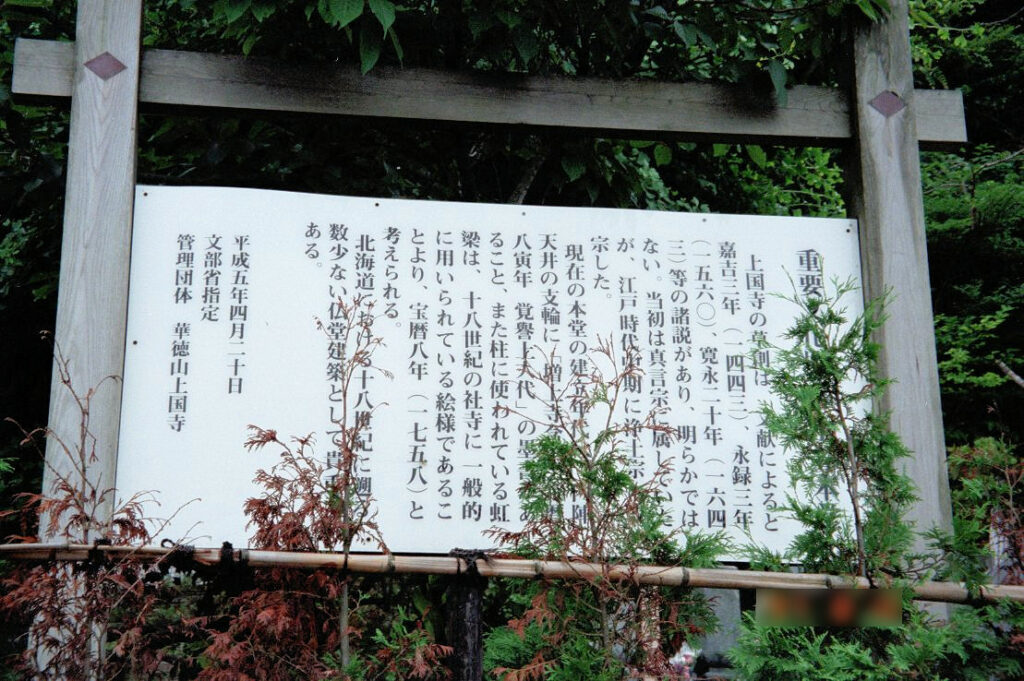 重要文
上国寺の草創は、文献によると
嘉吉三年（一四四三）、永録三年
（一五六〇）、寛永二十年（一六四
三）等の諸説があり、明らかでは
ない。当初は真言宗に属していた
が、江戸時代初期に浄土宗
宗した。
現在の本堂の建立年代は 陣
天井の支輪に「増上寺
八寅年 覚譽上人代」の墨 あ
ること、また柱に使われている虹
梁は、十八世紀の社寺に一般的
に用いられている絵様であるこ
とより、宝暦八年（一七五八）と
考えられる。
北海道における十八世紀に遡る
数少ない仏堂建築として貴重
ある。
平成五年四月二十日
文部省指定
管理団体 華徳山上国寺